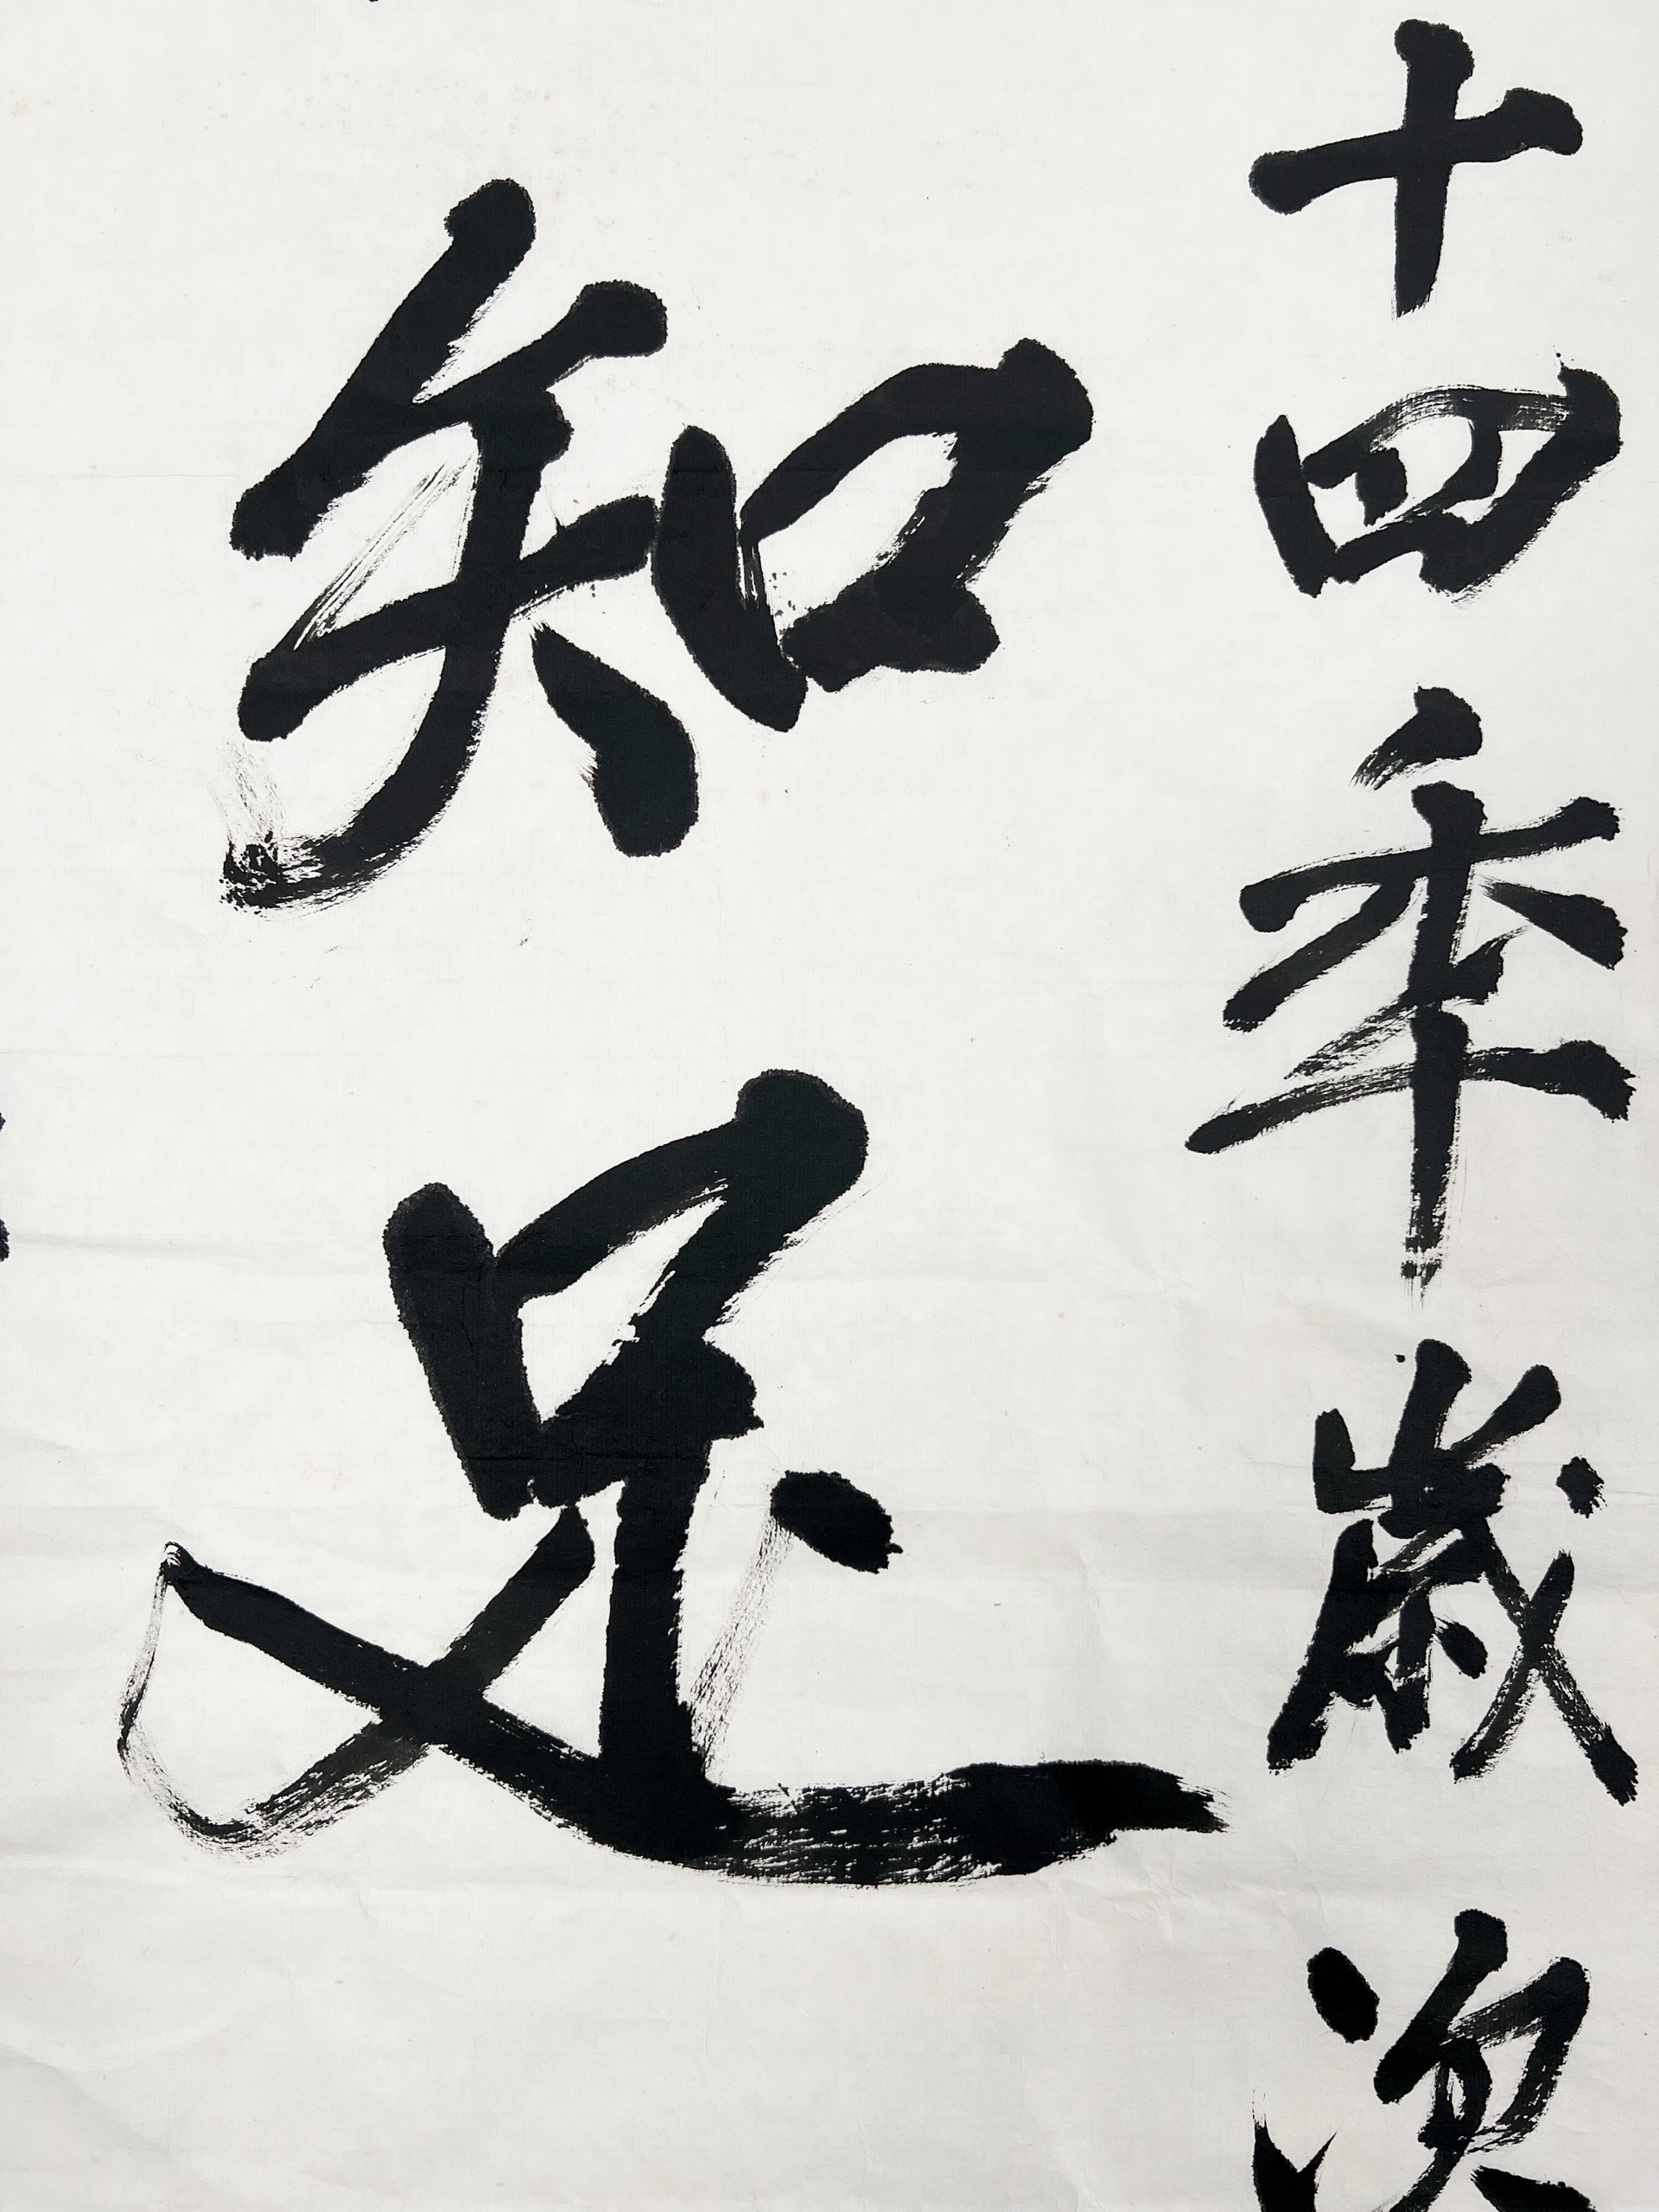 十四年歲次
知足